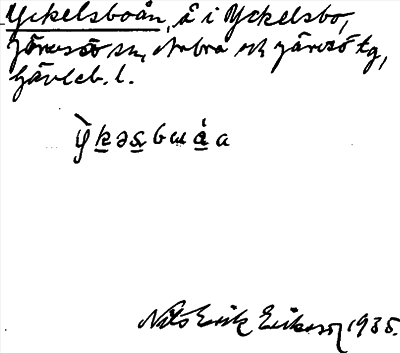 Yckelsboån, å i Yckelsbo,
Järvsö sn, Arbrå och Järvsö tg,
Gävleb. l.
ỳkəsbuáa
Nils Erik Eriksson 1935.